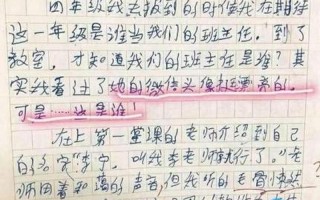 四年级我去报到的时候我在期待
这一年级是谁当我们的班主任。到了
教室，才知道我们的班主任是谁？其
实我看过了她的微信头像挺漂亮的。
可是……这是谁！
在上第一堂课的老师介绍到自己
的名字"李宁，叫我李老师就行了。"老
师用着和蔼的声音，但我听的毛骨悚然